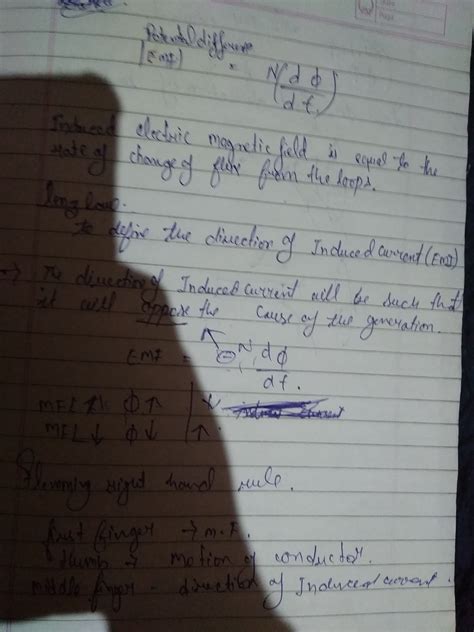 Potential difference
(EMF) = N(dϕ/dt)
Induced electric magnetic field is equal to the
rate of change of flux from the loops.
lenz law.
to define the direction of Induced current (EMF)
→ The direction of Induced current will be such that
it will oppose the cause of the generation.
EMF = ⊖N dϕ/dt.
MFL ↑ ϕ↑ | ↓
MFL ↓ ϕ↓ | ↑.
Flemming right hand rule.
first finger → M.F.
thumb → motion of conductor.
middle finger - direction of Induced current.